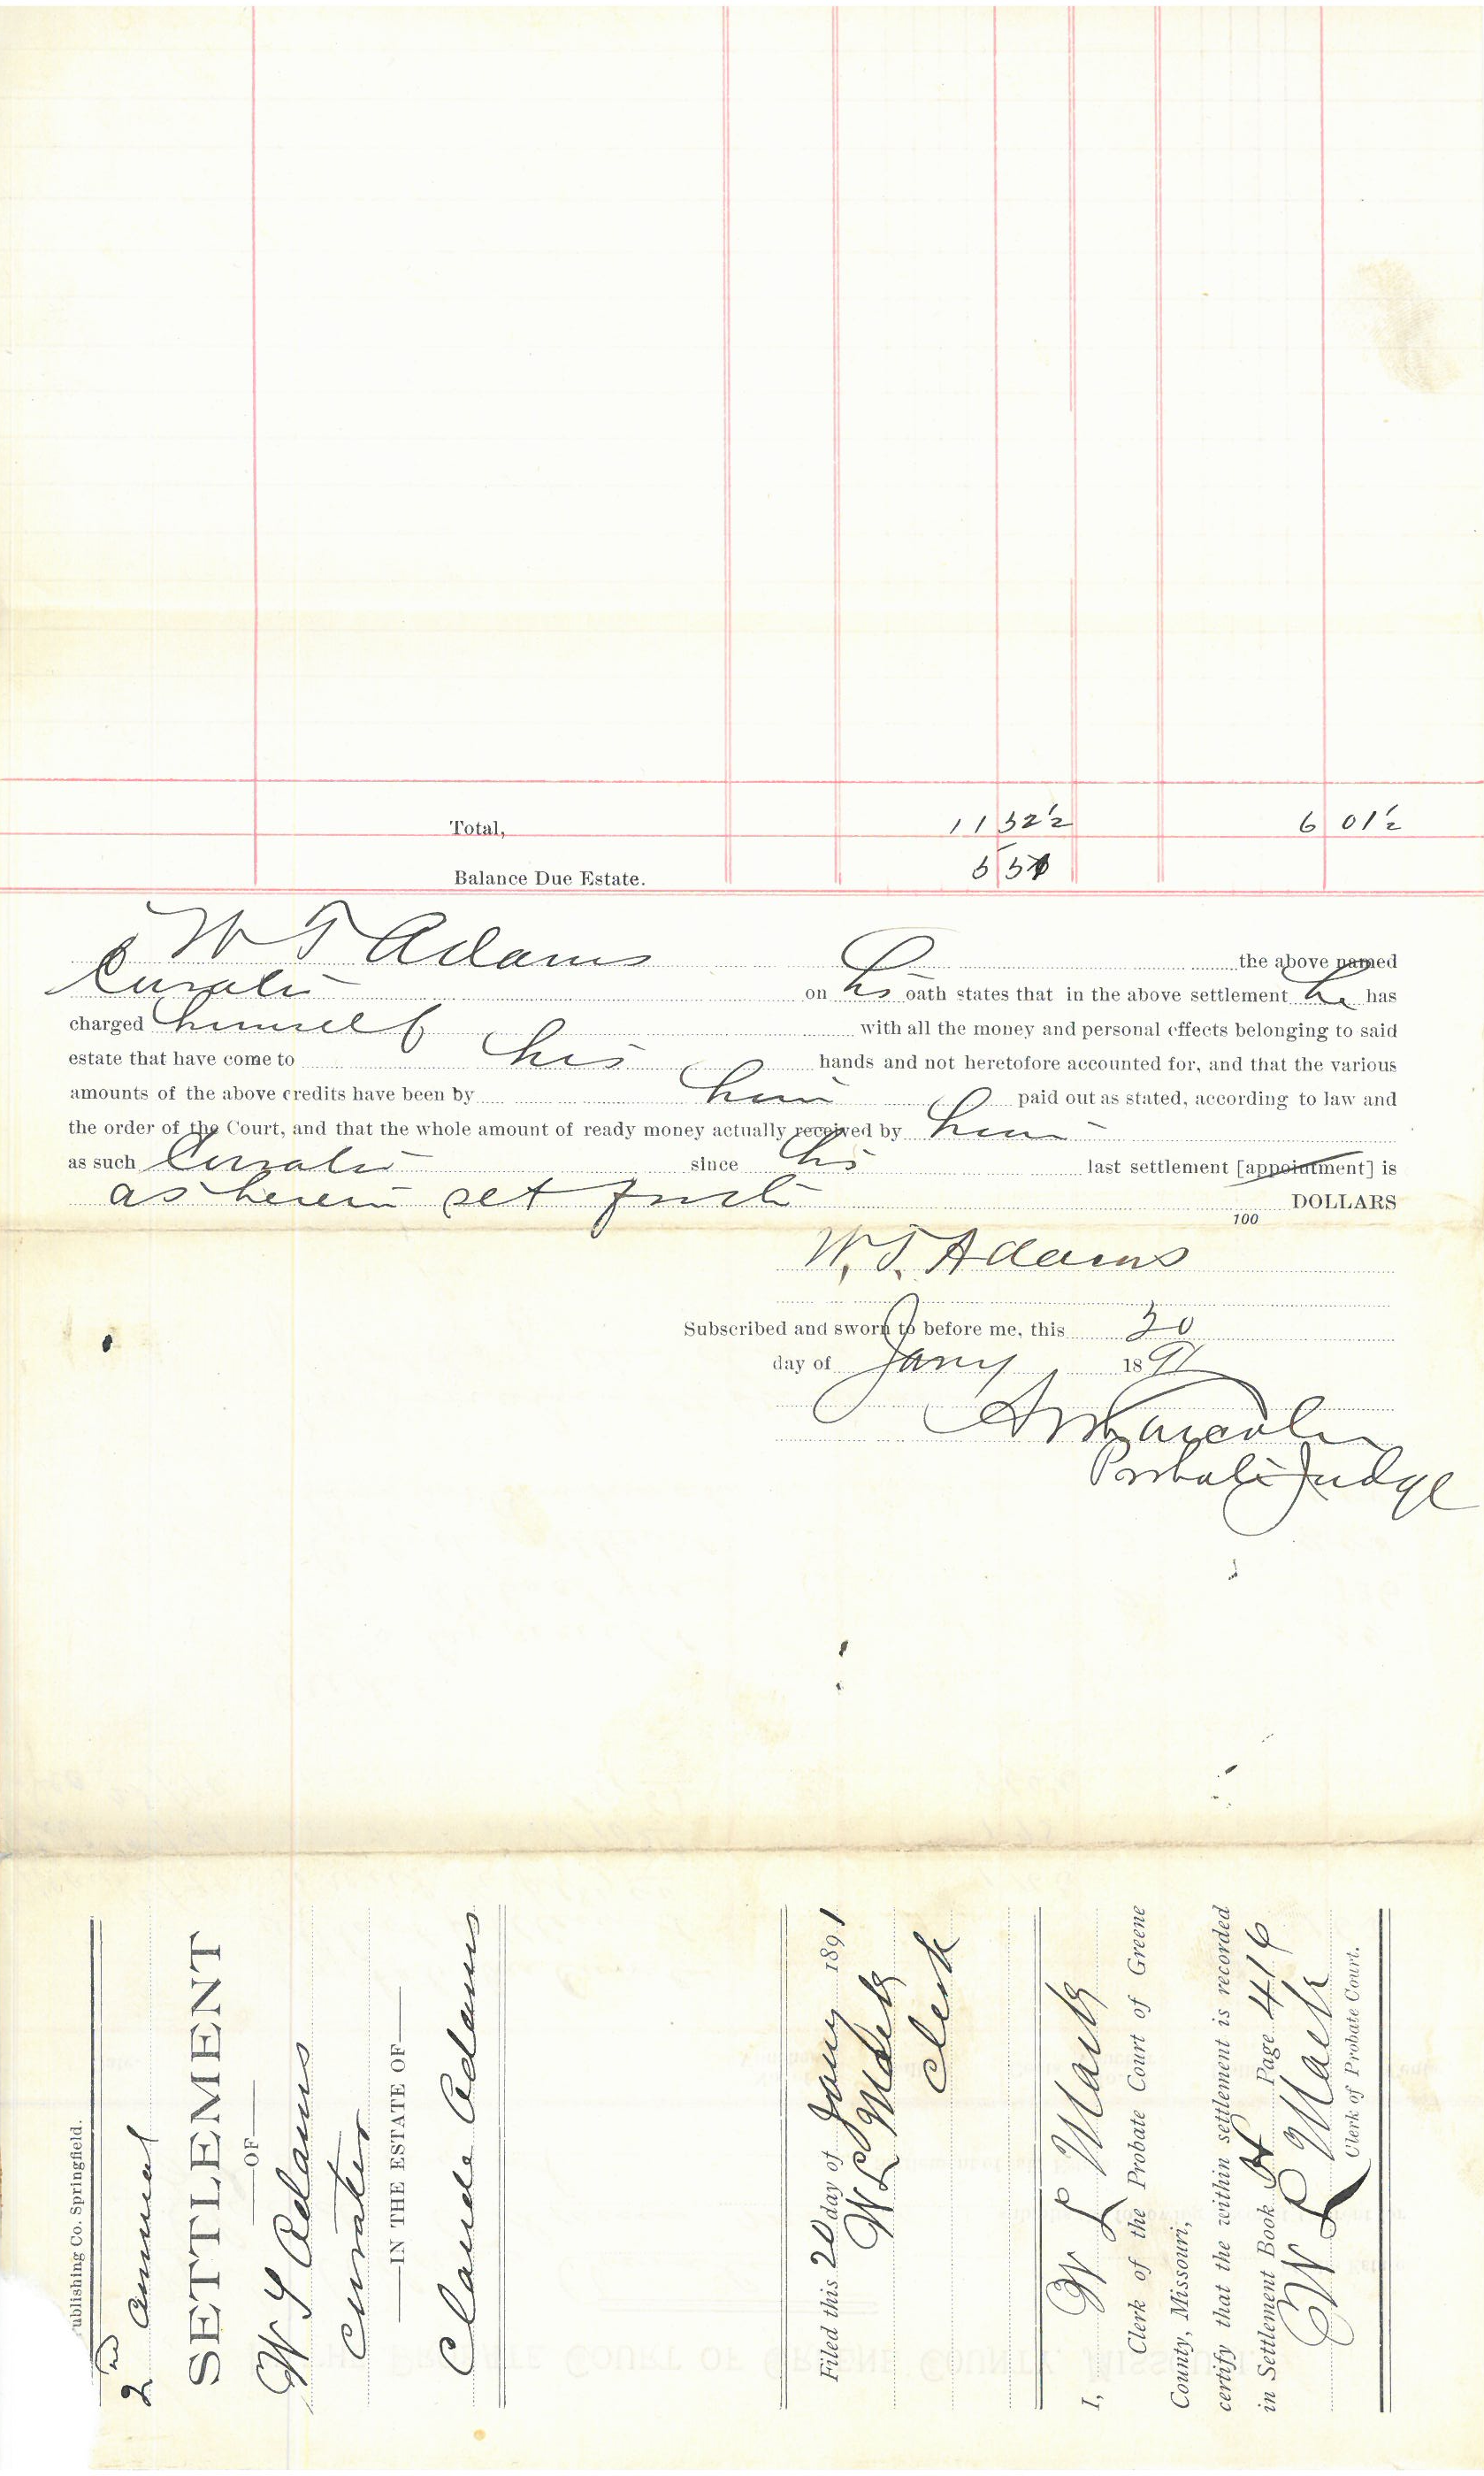 Total, 11 52½ 6 01½
Balance Due Estate. 5 51
W T Adams the above named
Curator on his oath states that in the above settlement he has
charged himself with all the money and personal effects belonging to said
estate that have come to his hands and not heretofore accounted for, and that the various
amounts of the above credits have been by him paid out as stated, according to law and
the order of the Court, and that the whole amount of ready money actually received by him
as such Curator since his last settlement [appointment] is
as herein set forth 100 DOLLARS
W. T. Adams
Subscribed and sworn to before me, this 20
day of Jany 1891
Probate Judge
ublishing Co. Springfield.
2nd annual
SETTLEMENT
OF
W T Adams
Curator
IN THE ESTATE OF
Claude Adams
Filed this 20 day of Jany 1891
W L Mack
Clerk
I, W L Mack
Clerk of the Probate Court of Greene
County, Missouri,
certify that the within settlement is recorded
in Settlement Book H Page 416
W L Mack
Clerk of Probate Court.